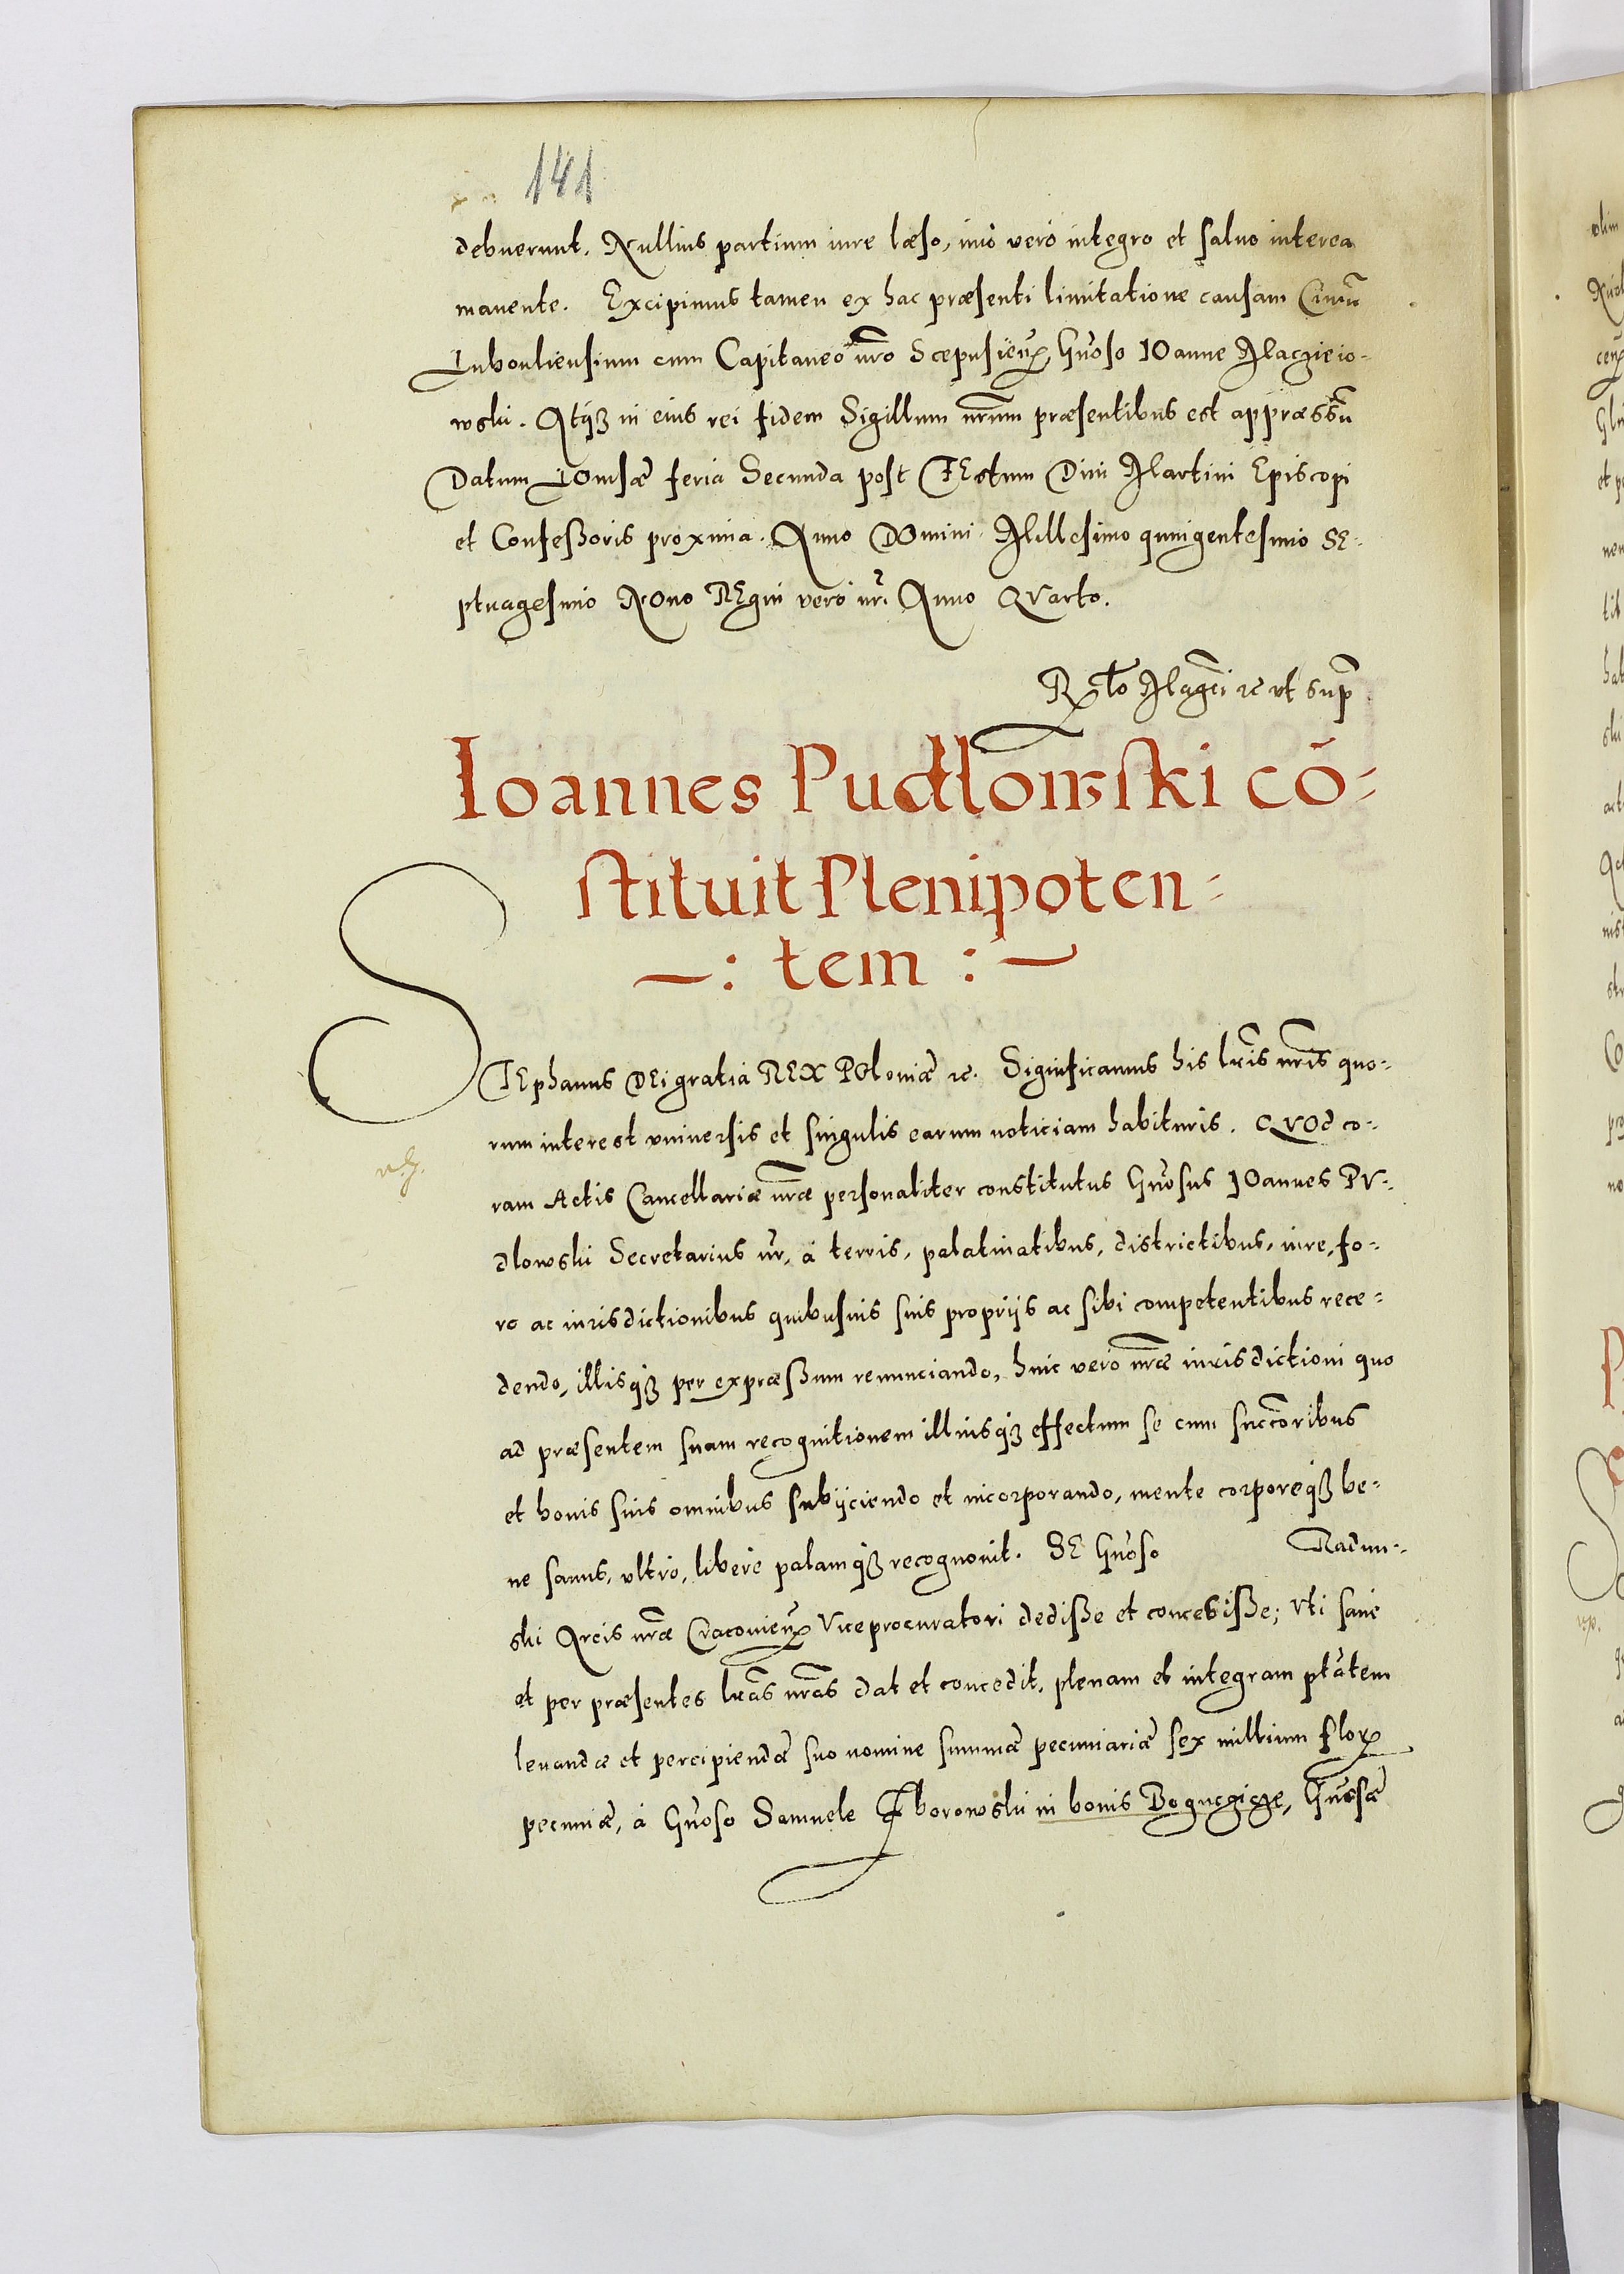 141
debuerunt. Nullius partium iure læso, imò verò integro et saluo interea
manente. Excipimus tamen ex hac præsenti limitatione causam Ciuiũ
Lubouliensium cum Capitaneo nr̃o Scepusień, Gñoso IOanne Maczieio-
wski. Atq́ȝ in eius rei fidem Sigillum nr̃um præsentibus est appræssũ
Datum LOmsæ feria Secunda post FEstum Diui Martini Episcopi
et Confeßoris proxima. Anno DOmini Millesimo quingentesimo SE-
ptuagesimo NOno REgni verò nr̃i Anno QVarto.
Rlõ Magcĩ ꝛc vt sup̃
Ioannes Pudlowski cō-
stituit Plenipoten-
-: tem :-
STEphanus DEi gratia REX POloniæ ꝛc. Significamus his lr̃is nr̃is quo-
rum interest vniuersis et singulis earum noticiam habituris. QVOd co-
ram Actis Cancellariæ nr̃æ personaliter constitutus Gñosus IOannes PV-
dlowski Secretarius nr̃, à terris, palatinatibus, districtibus, iure, fo-
ro ac iurisdictionibus quibusuis suis proprijs ac sibi competentibus rece-
dendo, illisq́ȝ per expræßum renunciando, huic verò nr̃æ iurisdictioni quo
ad præsentem suam recognitionem illiusq́ȝ effectum se cum succõribus
et bonis suis omnibus subijciendo et incorporando, mente corporeq́ȝ be-
ne sanus, vltrò, liberè palamq́ȝ recognouit. SE Gñoso Radun-
ski Arcis nr̃æ Cracouień Viceprocuratori dediße et conceßiße; vti sanè
et per præsentes lr̃as nr̃as dat et concedit, plenam et integram ptãtem
leuandæ et percipiendæ suo nomine summæ pecuniariæ sex millium flor̃
pecuniæ, à Gñoso Samuele Zborowski in bonis Bogucgicze, Gñosæ